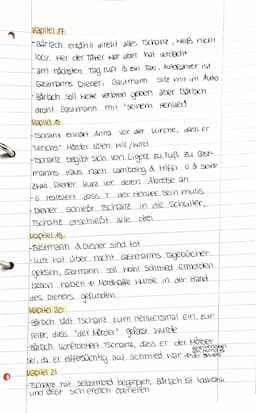 Kapitel 17
- Bärlach erzählt direkt alles Tschanz, weiß nicht
100% wer der Täter war aber hat verdacht
- am nächsten Tag ruft B ein Taxi, Autofahrer ist
Gastmanns Diener, Gastmann sitz mit im Auto
- Bärlach soll Notiz verloren geben aber Bärlach
droht Gastmann mit "seinem Henker"
Kapitel 18
- Tschanz erklärt Anna vor der Kirche, dass er
Ulrichs Mörder töten will / wird
- Tschanz begibt sich von Ligerz zu Fuß zu Gast-
manns Haus nach Lamboing & trifft G & seine
zwei Diener kurz vor deren Abreise an
- G realisiert dass T. der Henker sein muss
- Diener schießt Tschanz in die Schulter,
Tschanz erschießt alle drei
Kapitel 19
- Gastmann & Diener sind tot
- Lutz hat über Nacht Gastmanns Tagebücher
gelesen, Gastmann soll wohl Schmied ermorden
lassen haben → Mordwaffe wurde in der Hand
des Dieners gefunden
Kapitel 20
- Bärlach lädt Tschanz zum Henkersmal ein, zur
Feier, dass "der Mörder" gefasst wurde
- Bärlach konfrontiert Tschanz, dass er der Mörder
sei, da er eifersüchtig auf Schmied war
Kapitel 21
- Tschanz hat Selbstmord begangen, Bärlach ist
und lässt sich endlich operieren